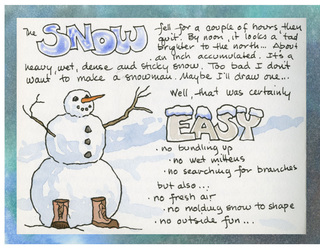 The SNOW fell for a couple of hours then
quit. By noon, it looks a tad
brighter to the north... About
an inch accumulated. It's a
heavy, wet, dense and sticky snow. Too bad I don't
want to make a snowman. Maybe I'll draw one...
Well, that was certainly
EASY
· no bundling up
· no wet mittens
· no searching for branches
but also...
· no fresh air
· no molding snow to shape
· no outside fun...